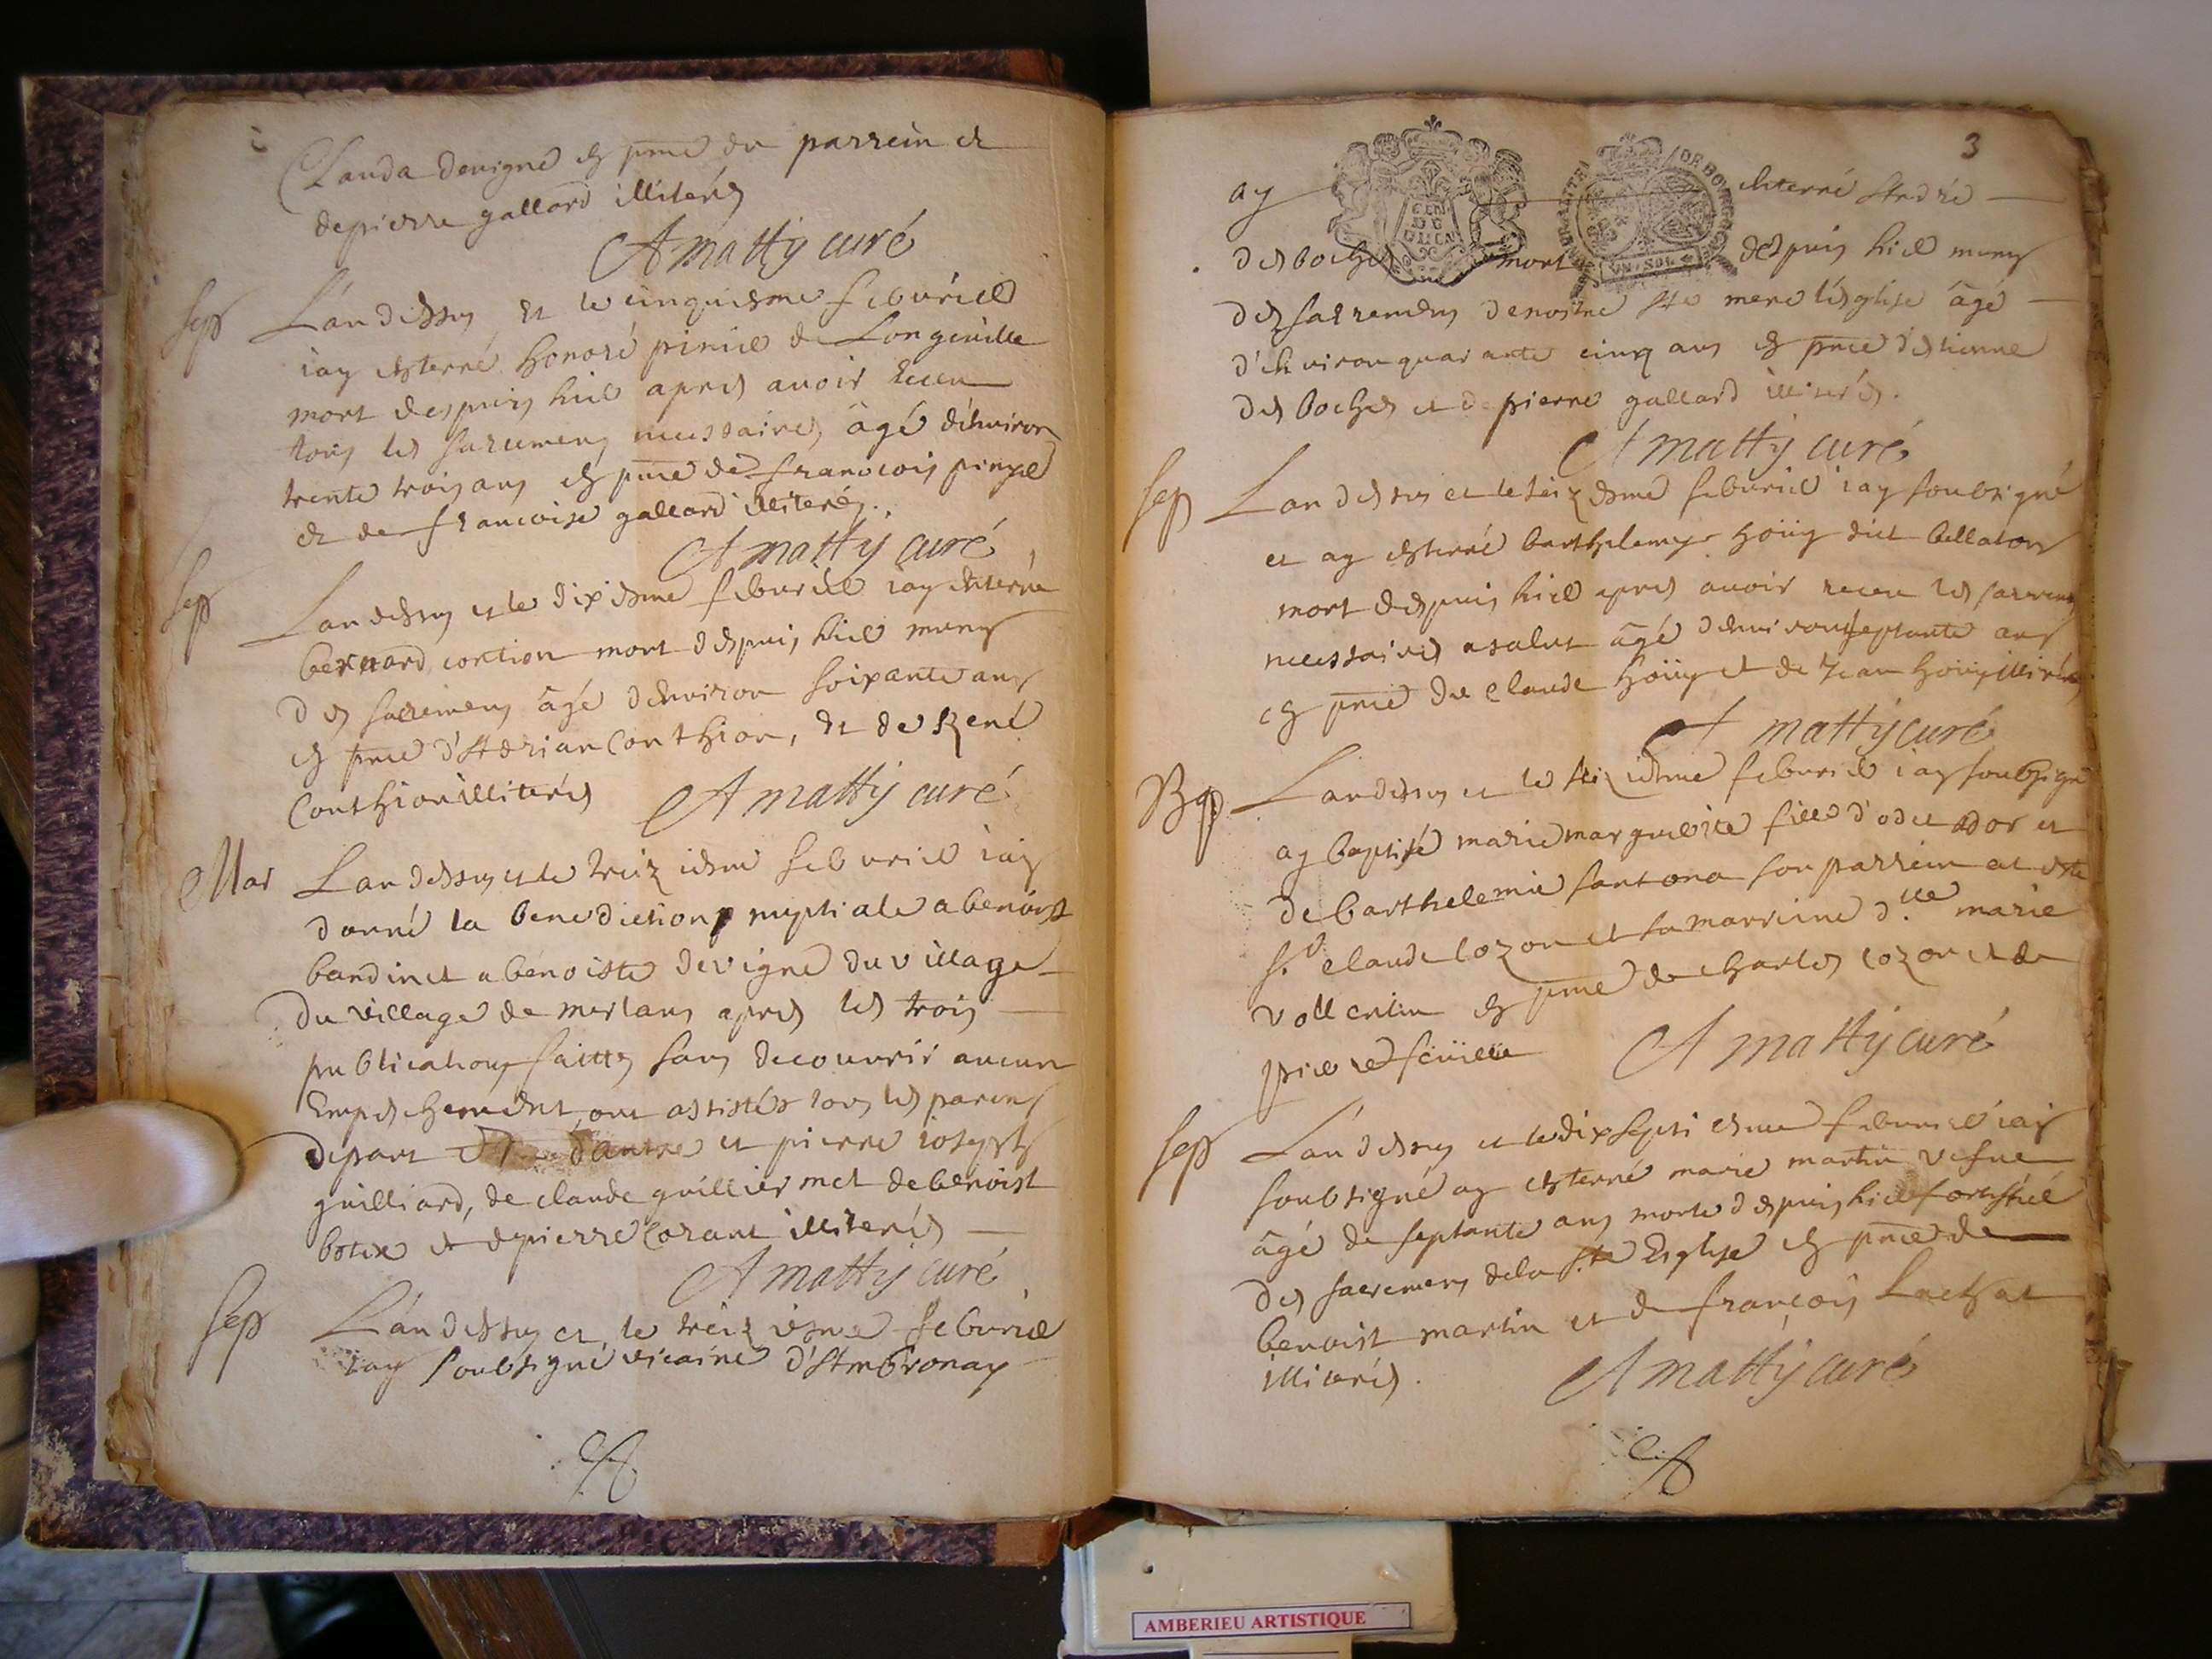 Clauda devigne en pnce du parrein et
de pierre gallard illiterés
A matty curé
sep L'an dessus et le cinquiesme febvrier
iay enterré honoré pinier de Longeville
mort despuis hier apres avoir receu
tous les sacremens necessaires âgé d'environ
trente trois ans en pnce de francois
et de francoise gallard illiterés
A matty curé
sep L'an dessus et le dixiesme febvrier iay enterré
bernard contion mort despuis hier muny
des sacremens âgé d'environ soixante ans
en pnce d'Adrian Conthion, et de René
Conthion illiterés A matty curé
Mar L'an dessus et le treiziesme febvrier iay
donné la benediction nuptiale a benoist
bandin et a benoiste devigne du village
du village de merlans apres les trois
publications faittes sans decouvrir aucun
Empeschement, ont assistés tous les parens
de part et d'autre et pierre ioseph
guilliard, de claude guilliermet de benoist
botex et de pierre Corant illiterés
A matty curé
sep L'an dessus et le treiziesme febvrier
iay soubsigné vicaire d'Ambronay
A
3
GEN DE
GENERALITE DE BOURGOGNE
UN SOL
ay enterré André
des boches mort despuis hier muny
des sacremens de nostre ste mere l'esglise âgé
d'environ quarante cinq ans en pnce d'estienne
des boches et de pierre gallard illiterés.
A matty curé
sep L'an dessus et le seiziesme febvrier iay soubsigné
et ay enterré barthelemy hoüy dict bellaton
mort despuis hier apres avoir receu les sacremens
necessaires a salut âgé d'environ septante ans
en pnce de claude hoüy et de Jean hoüy illiterés
A matty curé
Bap L'an dessus et le seiziesme febvrier iay soubsigné
ay baptisé marie marguerite fille d'odet ador et
de barthelemie santona son parrein at esté
sr. claude lozon et sa marreine dlle marie
vollentin en pnce de charles cozon et de
A matty curé
sep L'an dessus et le dix septiesme febvrier iay
soubsigné ay enterré marie martin vefve
âgé de septante ans morte despuis hier fortifiée
des sacremens de la ste Esglise en pnce de
benoist martin et de françois Lachat
illiterés. A matty curé
A
AMBERIEU ARTISTIQUE